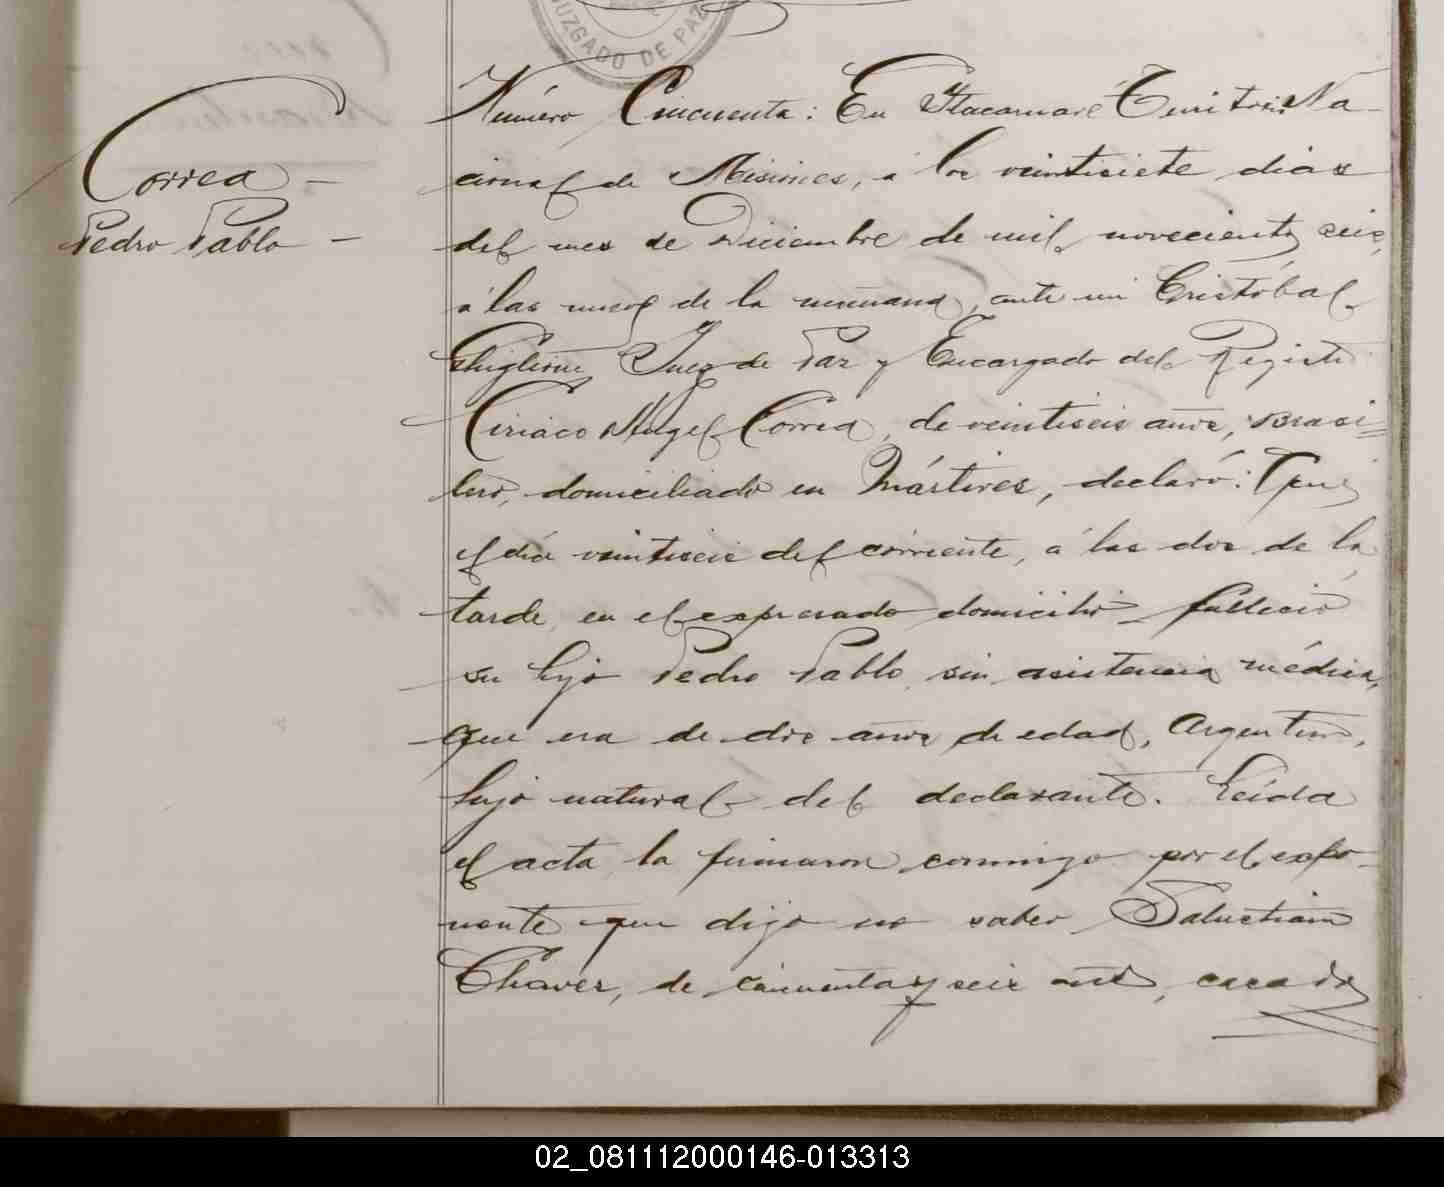 JUZGADO DE PAZ
Correa
Pedro Pablo
Número Cincuenta: En Itacaruaré Territorio Na-
cional de Misiones, á los veintisiete dias
del mes de Diciembre de mil novecientos seis,
á las nueve de la mañana, ante mi Cristóbal
Ghiglione Juez de Paz y Encargado del Registro
Ciriaco Angel Correa, de veintiseis años, Brasi-
lero, domiciliado en Mártires, declaró: Que
el dia veintiseis del corriente, á las dos de la
tarde, en el expresado domicilio falleció
su hijo Pedro Pablo, sin asistencia médica,
que era de dos años de edad, Argentino,
hijo natural del declarante. Leída
el acta la firmaron conmigo por el expo-
nente que dijo no saber Salustiano
Chaves, de cincuenta y seis años, casado
02_081112000146-013313